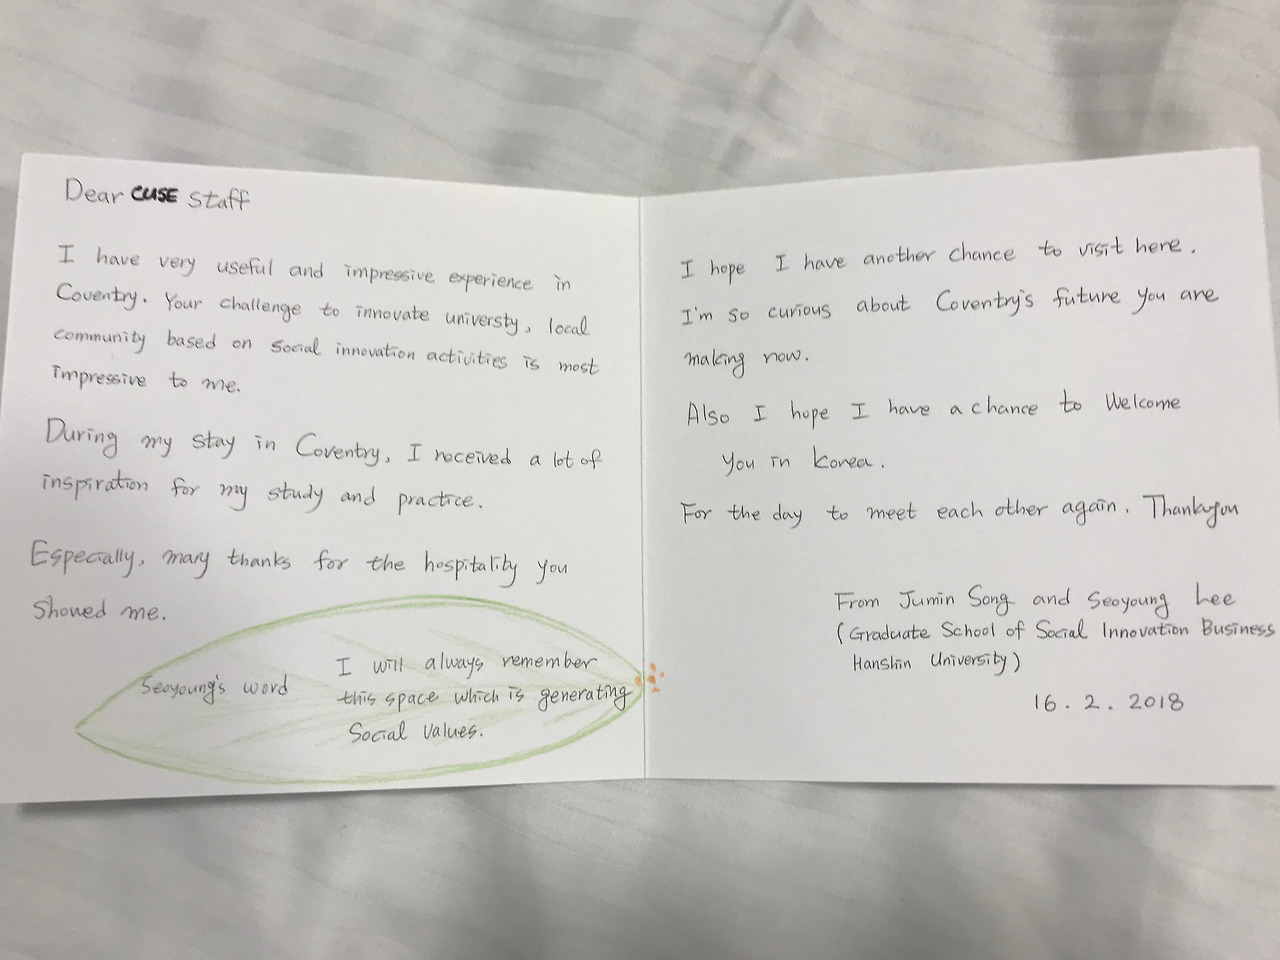 Dear CUSE Staff
I have very useful and impressive experience in
Coventry. Your challenge to innovate universty, local
community based on social innovation activities is most
impressive to me.
During my stay in Coventry, I received a lot of
inspiration for my study and practice.
Especially, many thanks for the hospitality you
showed me.
Seoyoung's word
I will always remember
this space which is generating
Social values.
I hope I have another chance to visit here.
I'm so curious about Coventry's future you are
making now.
Also I hope I have a chance to welcome
you in korea.
For the day to meet each other again. Thankyou
From Jumin Song and Seoyoung Lee
(Graduate School of Social Innovation Business
Hanshin University)
16. 2. 2018